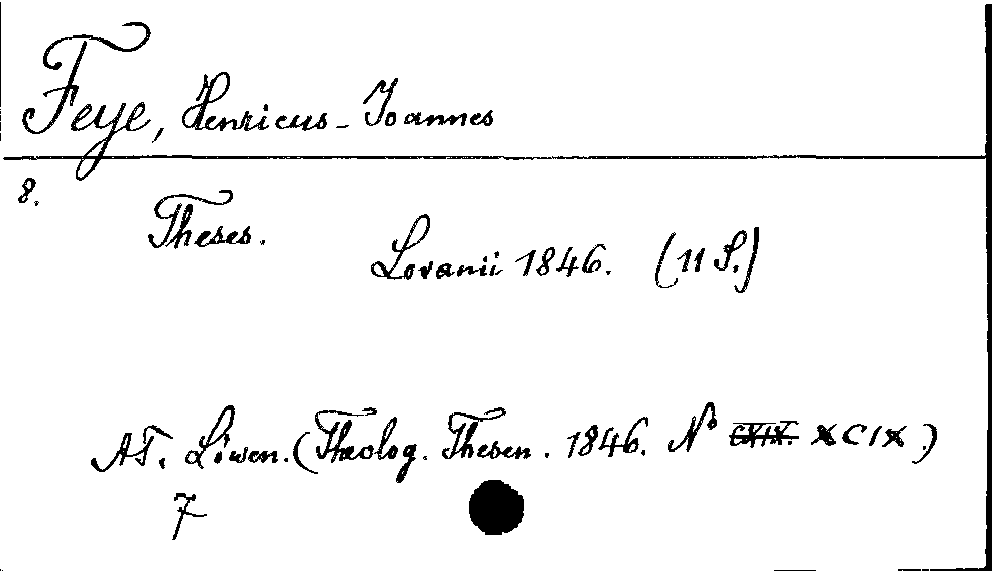 Feye, Henricus-Joannes
8.
Theses.
Lovanii 1846. (11 S.)
AT. Löwen. (Theolog. Thesen. 1846. No XCIX.)
7